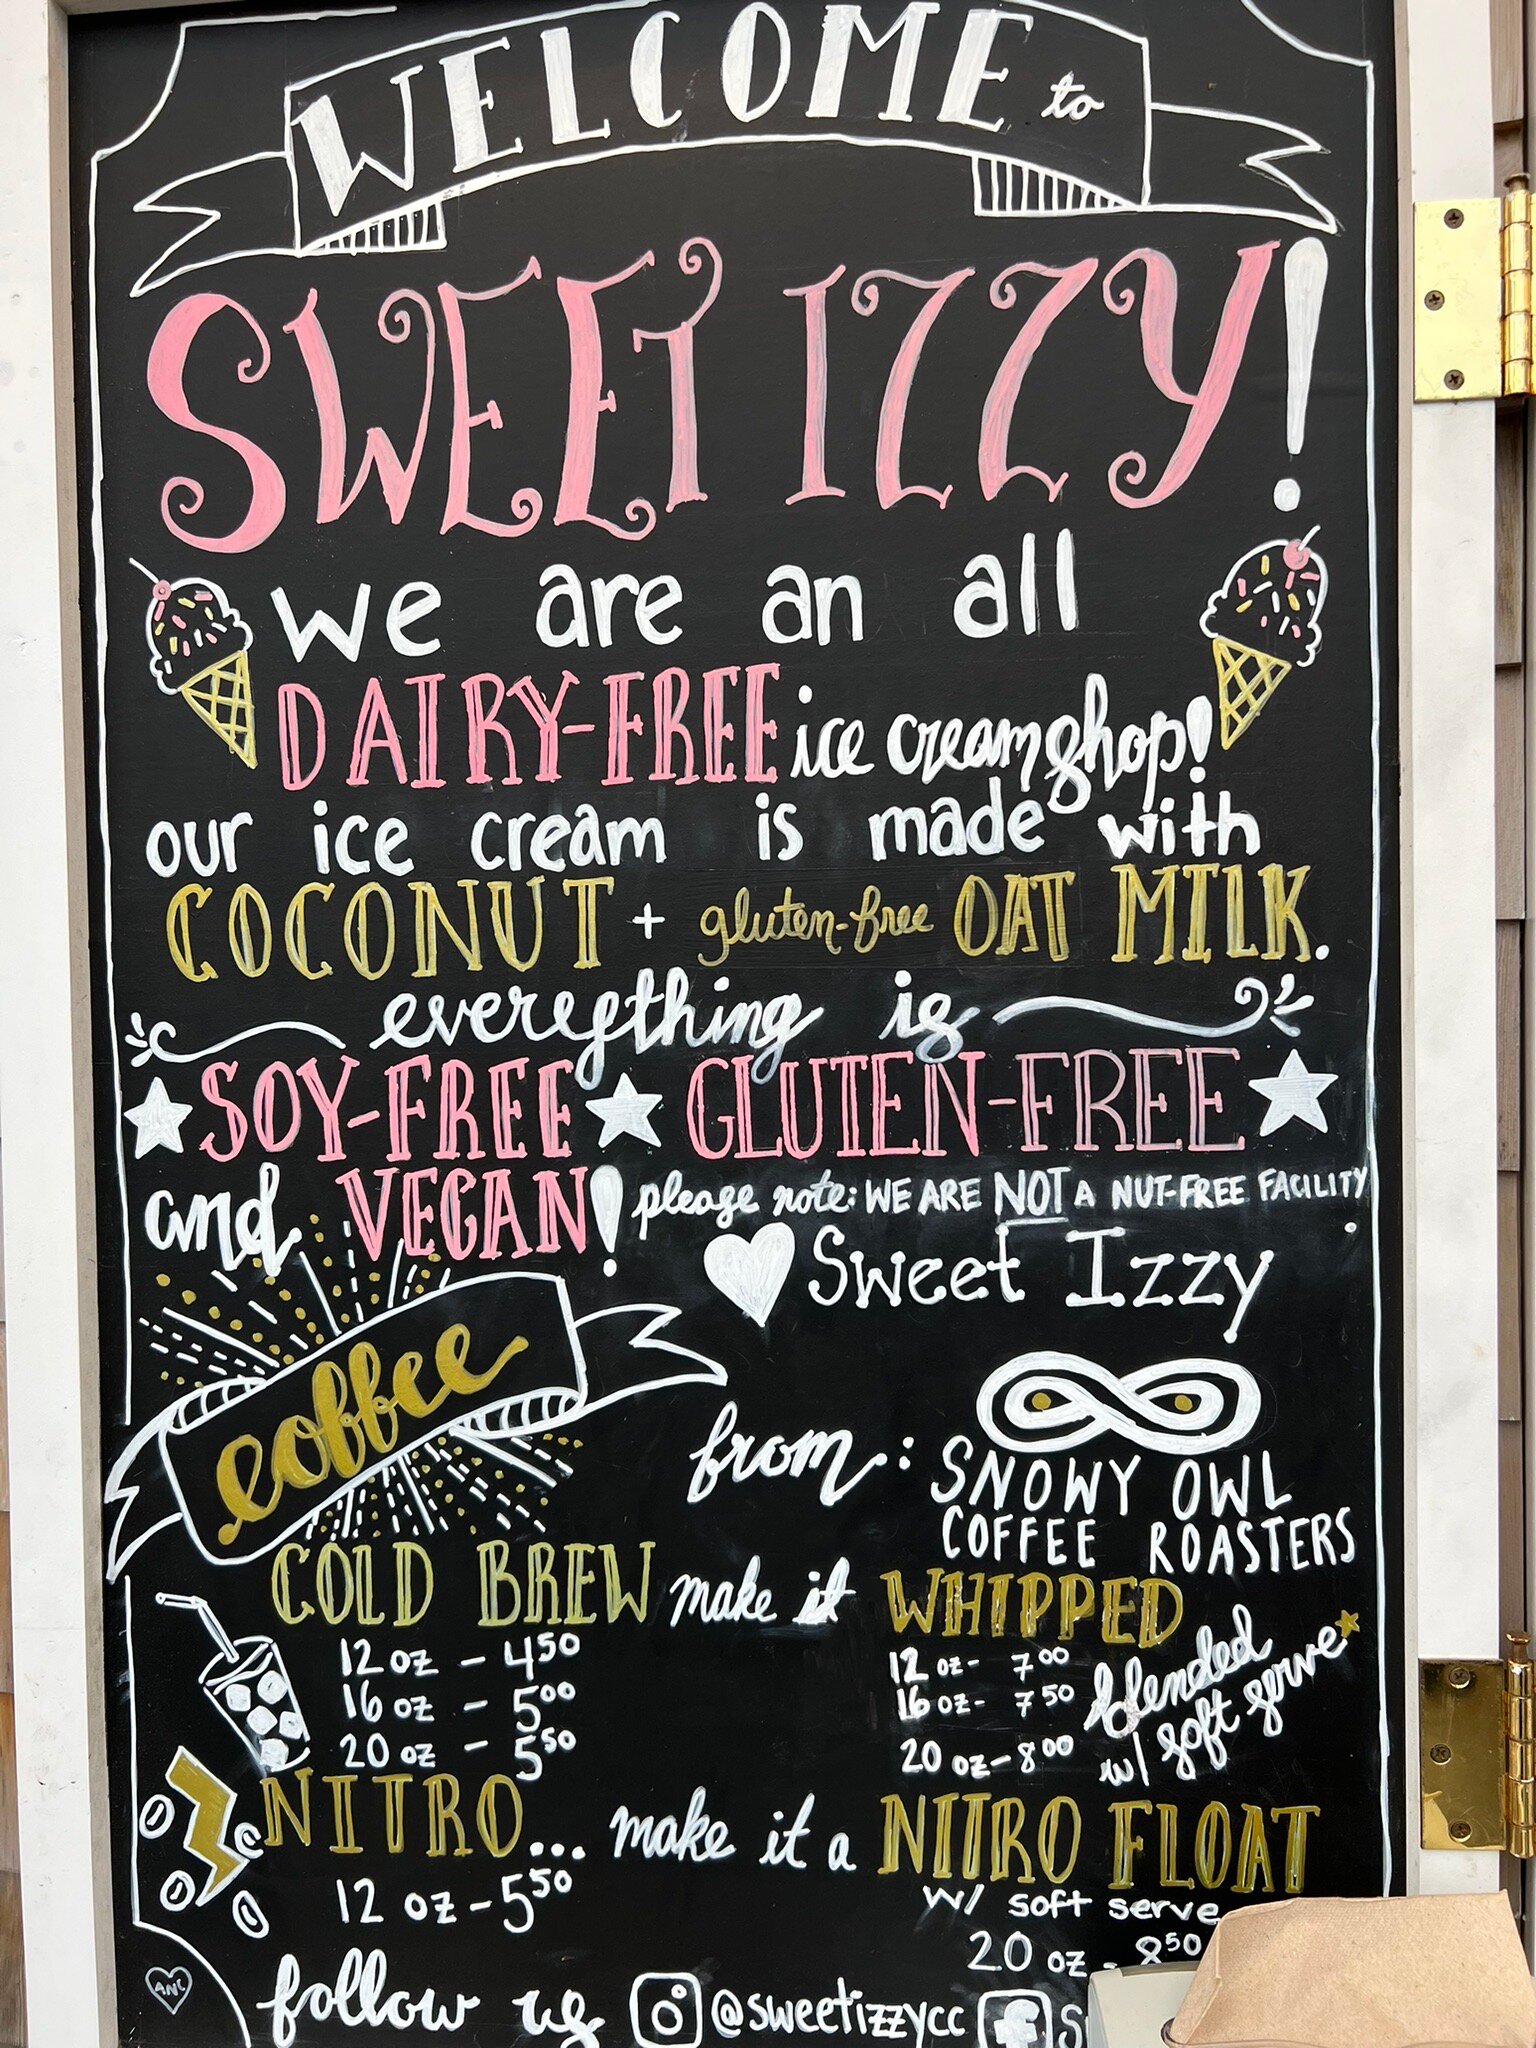 WELCOME to
SWEET IZZY!
we are an all
DAIRY-FREE ice cream shop!
our ice cream is made with
COCONUT + gluten-free OAT MILK.
everything is
SOY-FREE GLUTEN-FREE
and VEGAN! please note: WE ARE NOT A NUT-FREE FACILITY
Sweet Izzy
coffee from: SNOWY OWL
COFFEE ROASTERS
COLD BREW make it WHIPPED
12 oz - 450
16 oz - 500
20 oz - 550
12 oz - 700
16 oz - 750
20 oz - 800
blended
w/ soft serve
NITRO... make it a NITRO FLOAT
12 oz - 550
w/ soft serve
20 oz - 850
follow us @sweetizzycc f S
ANC